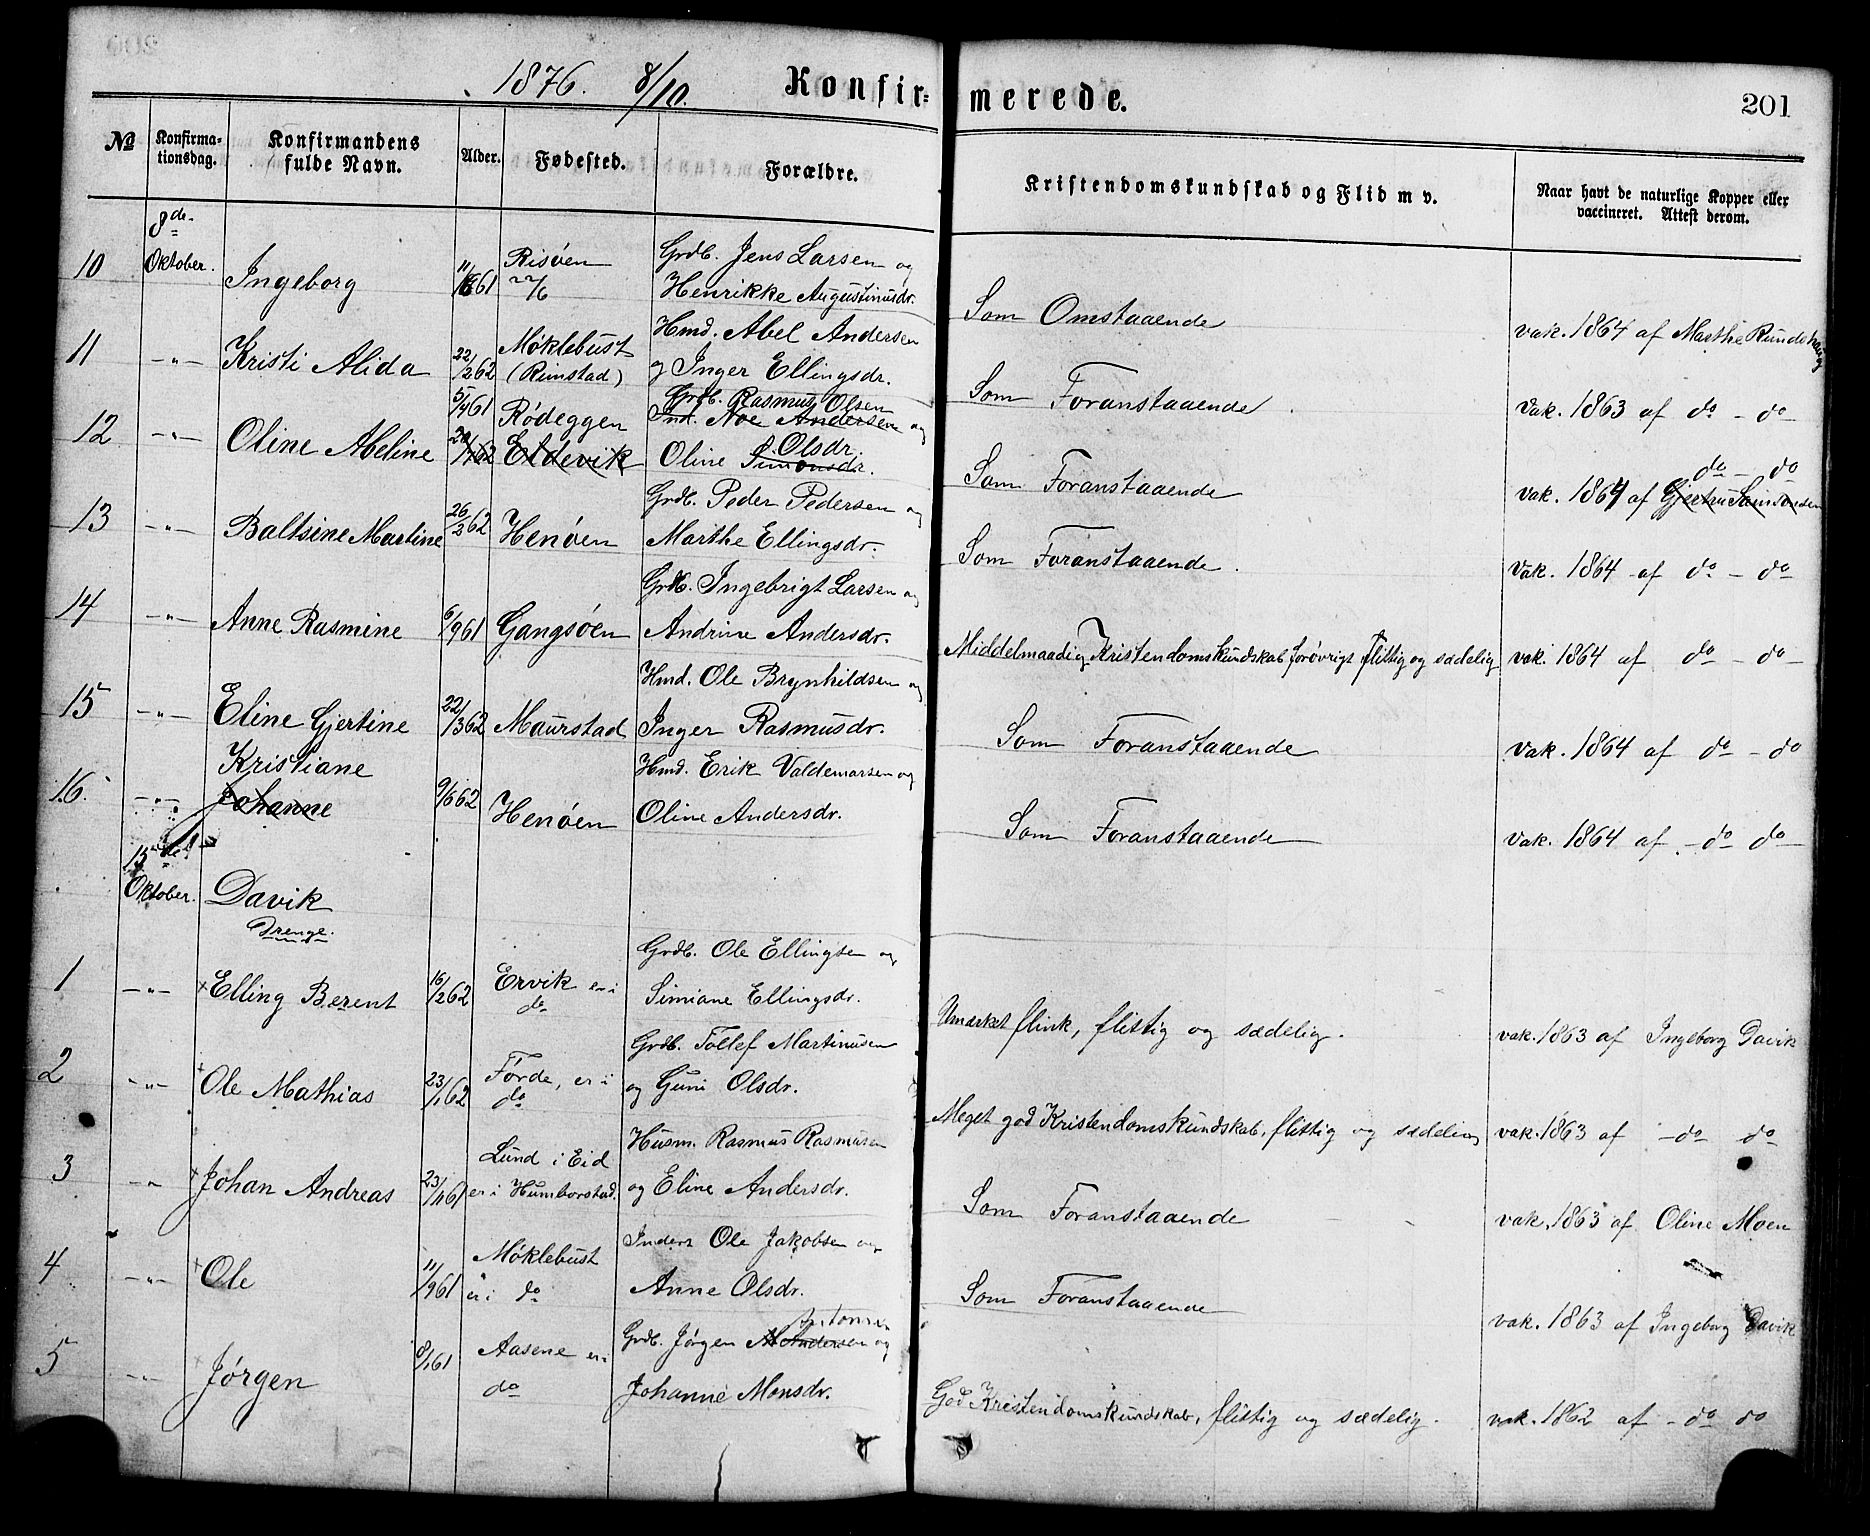 1876. 8/10. Konfir= merede. 201
No Konfirma-tionsdag. Konfirmandens fulde Navn. Alder. Fødested. Forældre. Kristendomskundskab og Flid m v. Naar havt de naturlige Kopper eller vaccineret. Attest derom.
8de
10 Oktober. Ingeborg 61 Risøen Grdb. Jens Larsen og
Henrikke Augustinusdr. Som Omstaaende vak. 1864 af Marthe Rundehaug
11 -"- Kristi Alida 22/2 62 Møklebust (Rimstad) Hmd. Abel Andersen
og Inger Ellingsdr. Som Foranstaaende vak. 1863 af do - do
5/4 61 Rødeggen Grdb. Rasmus Olsen
Ind. Noe Andersen og
12 -"- Oline Abeline 62 Eldevik Oline Simonsdr. Olsdr. Som Foranstaaende vak. 1864 af do - do
13 -"- Baltsine Martine 26/2 62 Henøen Grdb. Peder Pedersen og
Marthe Ellingsdr. Som Foranstaaende. vak. 1864 af do - do
14 -"- Anne Rasmine 6/9 61 Gangsøen Grdb. Ingebrigt Larsen og
Andrine Andersdr. Middelmaadig Kristendomskundskab forøvrigt flittig og sædelig vak. 1864 af do - do
15 -"- Eline Gjertine 22/3 62 Maurstad Hmd. Ole Brynhildsen og
Inger Rasmusdr. Som Foranstaaende vak. 1864 af do - do
Kristiane
16. -"- Johanne 9/6 62 Henøen Hmd. Erik Valdemarsen og
Oline Andersdr. Som Foranstaaende vak. 1864 af - do do
15de
Oktober. Davik
Drenge.
1 -"- Elling Berent 16/2 62 Ervik er i do Grdb. Ole Ellingsen og
Simiane Ellingsdr. Umærket flink, flittig og sædelig. vak. 1863 af Ingeborg Davik
2 -"- Ole Mathias 23/1 62 Førde, er i do Grdb. Tollef Martinusen
og Guni Olsdr. Meget god Kristendomskundskab, flittig og sædelig vak. 1863 af - do do
3 -"- Johan Andreas 61 Lund i Eid
er i Humborstad. Husm. Rasmus Rasmusen
og Eline Andersdr. Som Foranstaaende vak. 1863 af Oline Moen
4 -"- Ole 11/9 61 Møklebust
er i do Inders Ole Jakobsen og
Anne Olsdr. Som Foranstaaende vak. 1863 af Ingeborg Davik
5 -"- Jørgen 8/1 61 Aasene er i
do Grdb. Jørgen Andersen Antonsen og
Johanne Monsdr. God Kristendomskundskab, flittig og sædelig. vak. 1862 af - do do